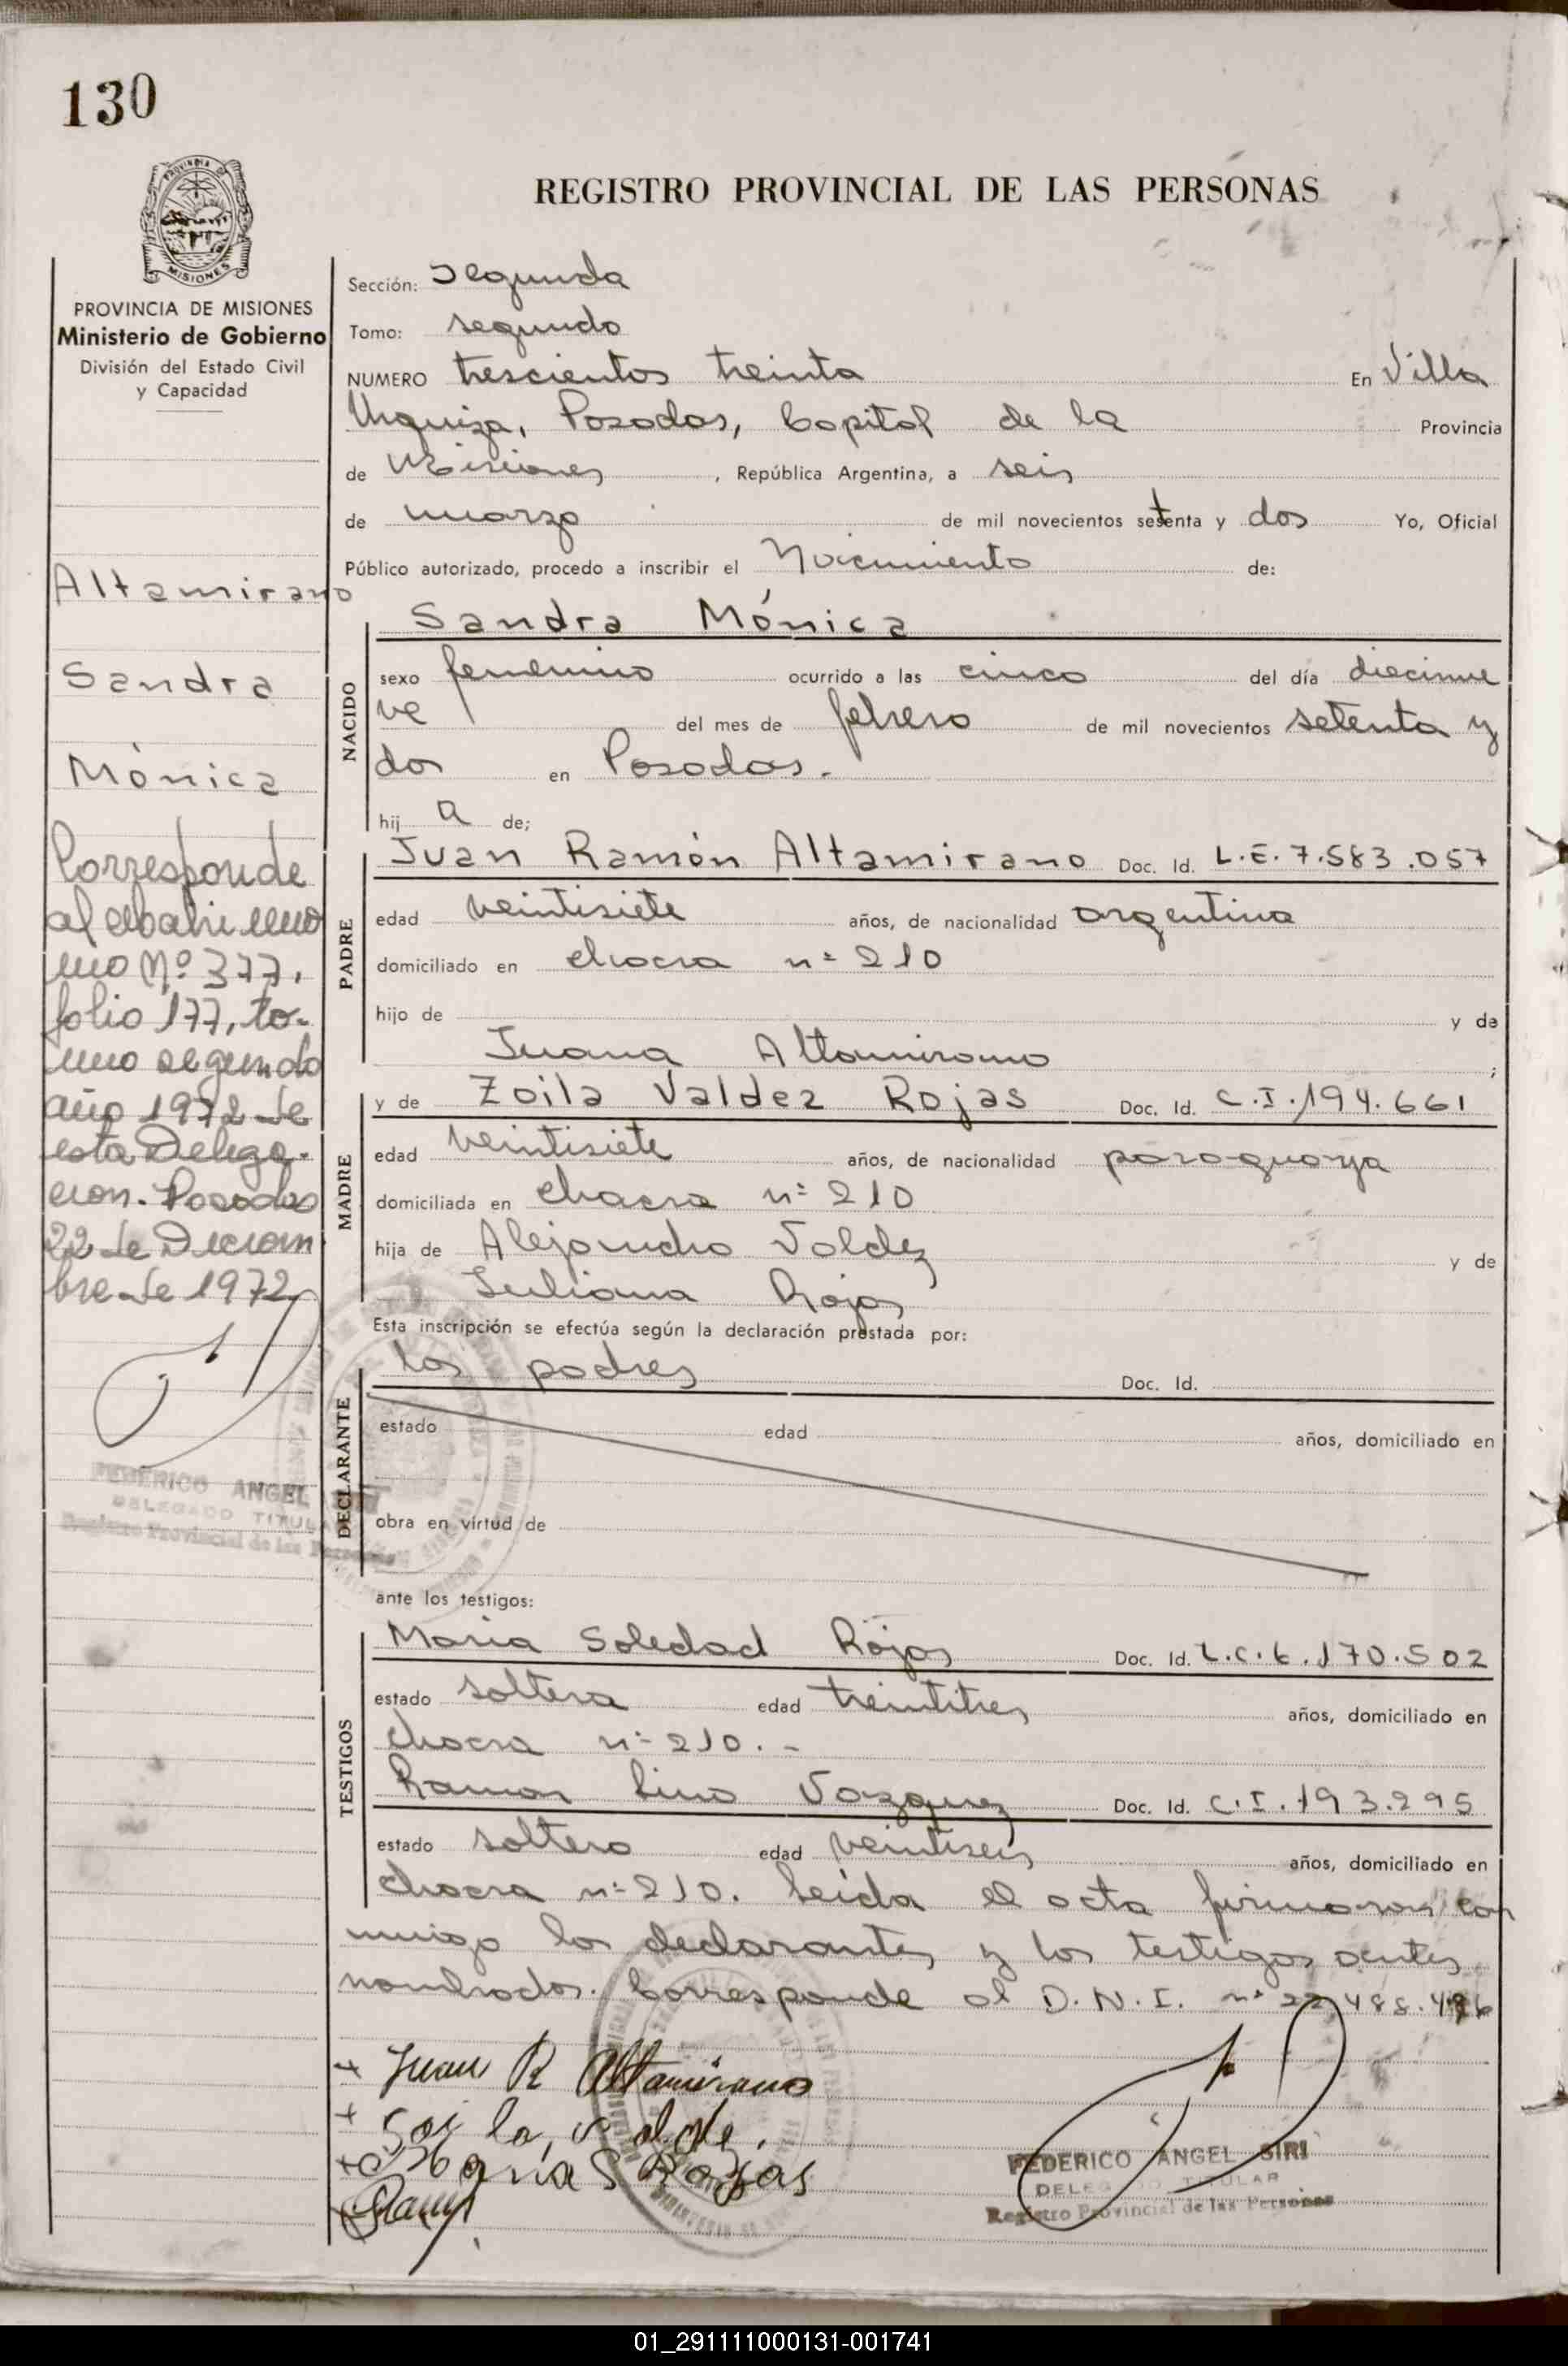 130
PROVINCIA DE
MISIONES
REGISTRO PROVINCIAL DE LAS PERSONAS
PROVINCIA DE MISIONES
Ministerio de Gobierno
División del Estado Civil
y Capacidad
Altamirano
Sandra
Mónica
Corresponde
al
mo Nº 377,
folio 177, to-
mo segundo
año 1972 de
esta Delega-
cion. Posadas
22 de Diciem
bre de 1972
FEDERICO ANGEL
DELEGADO TITULAR
Registro Provincial de las Personas
Sección: Segunda
Tomo: segundo
NUMERO trescientos treinta En Villa
Urquiza, Posadas, Capital de la Provincia
de Misiones, República Argentina, a seis
de marzo de mil novecientos setenta y dos Yo, Oficial
Público autorizado, procedo a inscribir el Nacimiento de:
Sandra Mónica
NACIDO
sexo femenino ocurrido a las cinco del día diecinue
ve del mes de febrero de mil novecientos setenta y
dos en Posadas.
hij a de;
PADRE
Juan Ramón Altamirano Doc. Id. L.E. 7.583.057
edad veintisiete años, de nacionalidad argentina
domiciliado en chacra nº 210
hijo de y de
Juana Altamirano ;
MADRE
y de Zoila Valdez Rojas Doc. Id. C.I. 194.661
edad veintisiete años, de nacionalidad paraguaya
domiciliada en chacra nº 210
hija de Alejandro Valdez y de
Juliana Rojas
Esta inscripción se efectúa según la declaración prestada por:
DECLARANTE
los padres Doc. Id.
estado edad años, domiciliado en
obra en virtud de
ante los testigos:
TESTIGOS
Maria Soledad Rojas Doc. Id. L.C. 6.170.502
estado soltera edad treintitres años, domiciliado en
chacra nº 210. -
Ramon Lino Vazquez Doc. Id. C.I. 193.295
estado soltero edad veintiseis años, domiciliado en
chacra nº 210. Leída el acta firmaron con
migo los declarantes y los testigos antes
nombrados. Corresponde al D.N.I. nº
Juan R Altamirano
Maria S Rojas
Ramon
FEDERICO ANGEL SIRI
DELEGADO TITULAR
Registro Provincial de las Personas
01_291111000131-001741